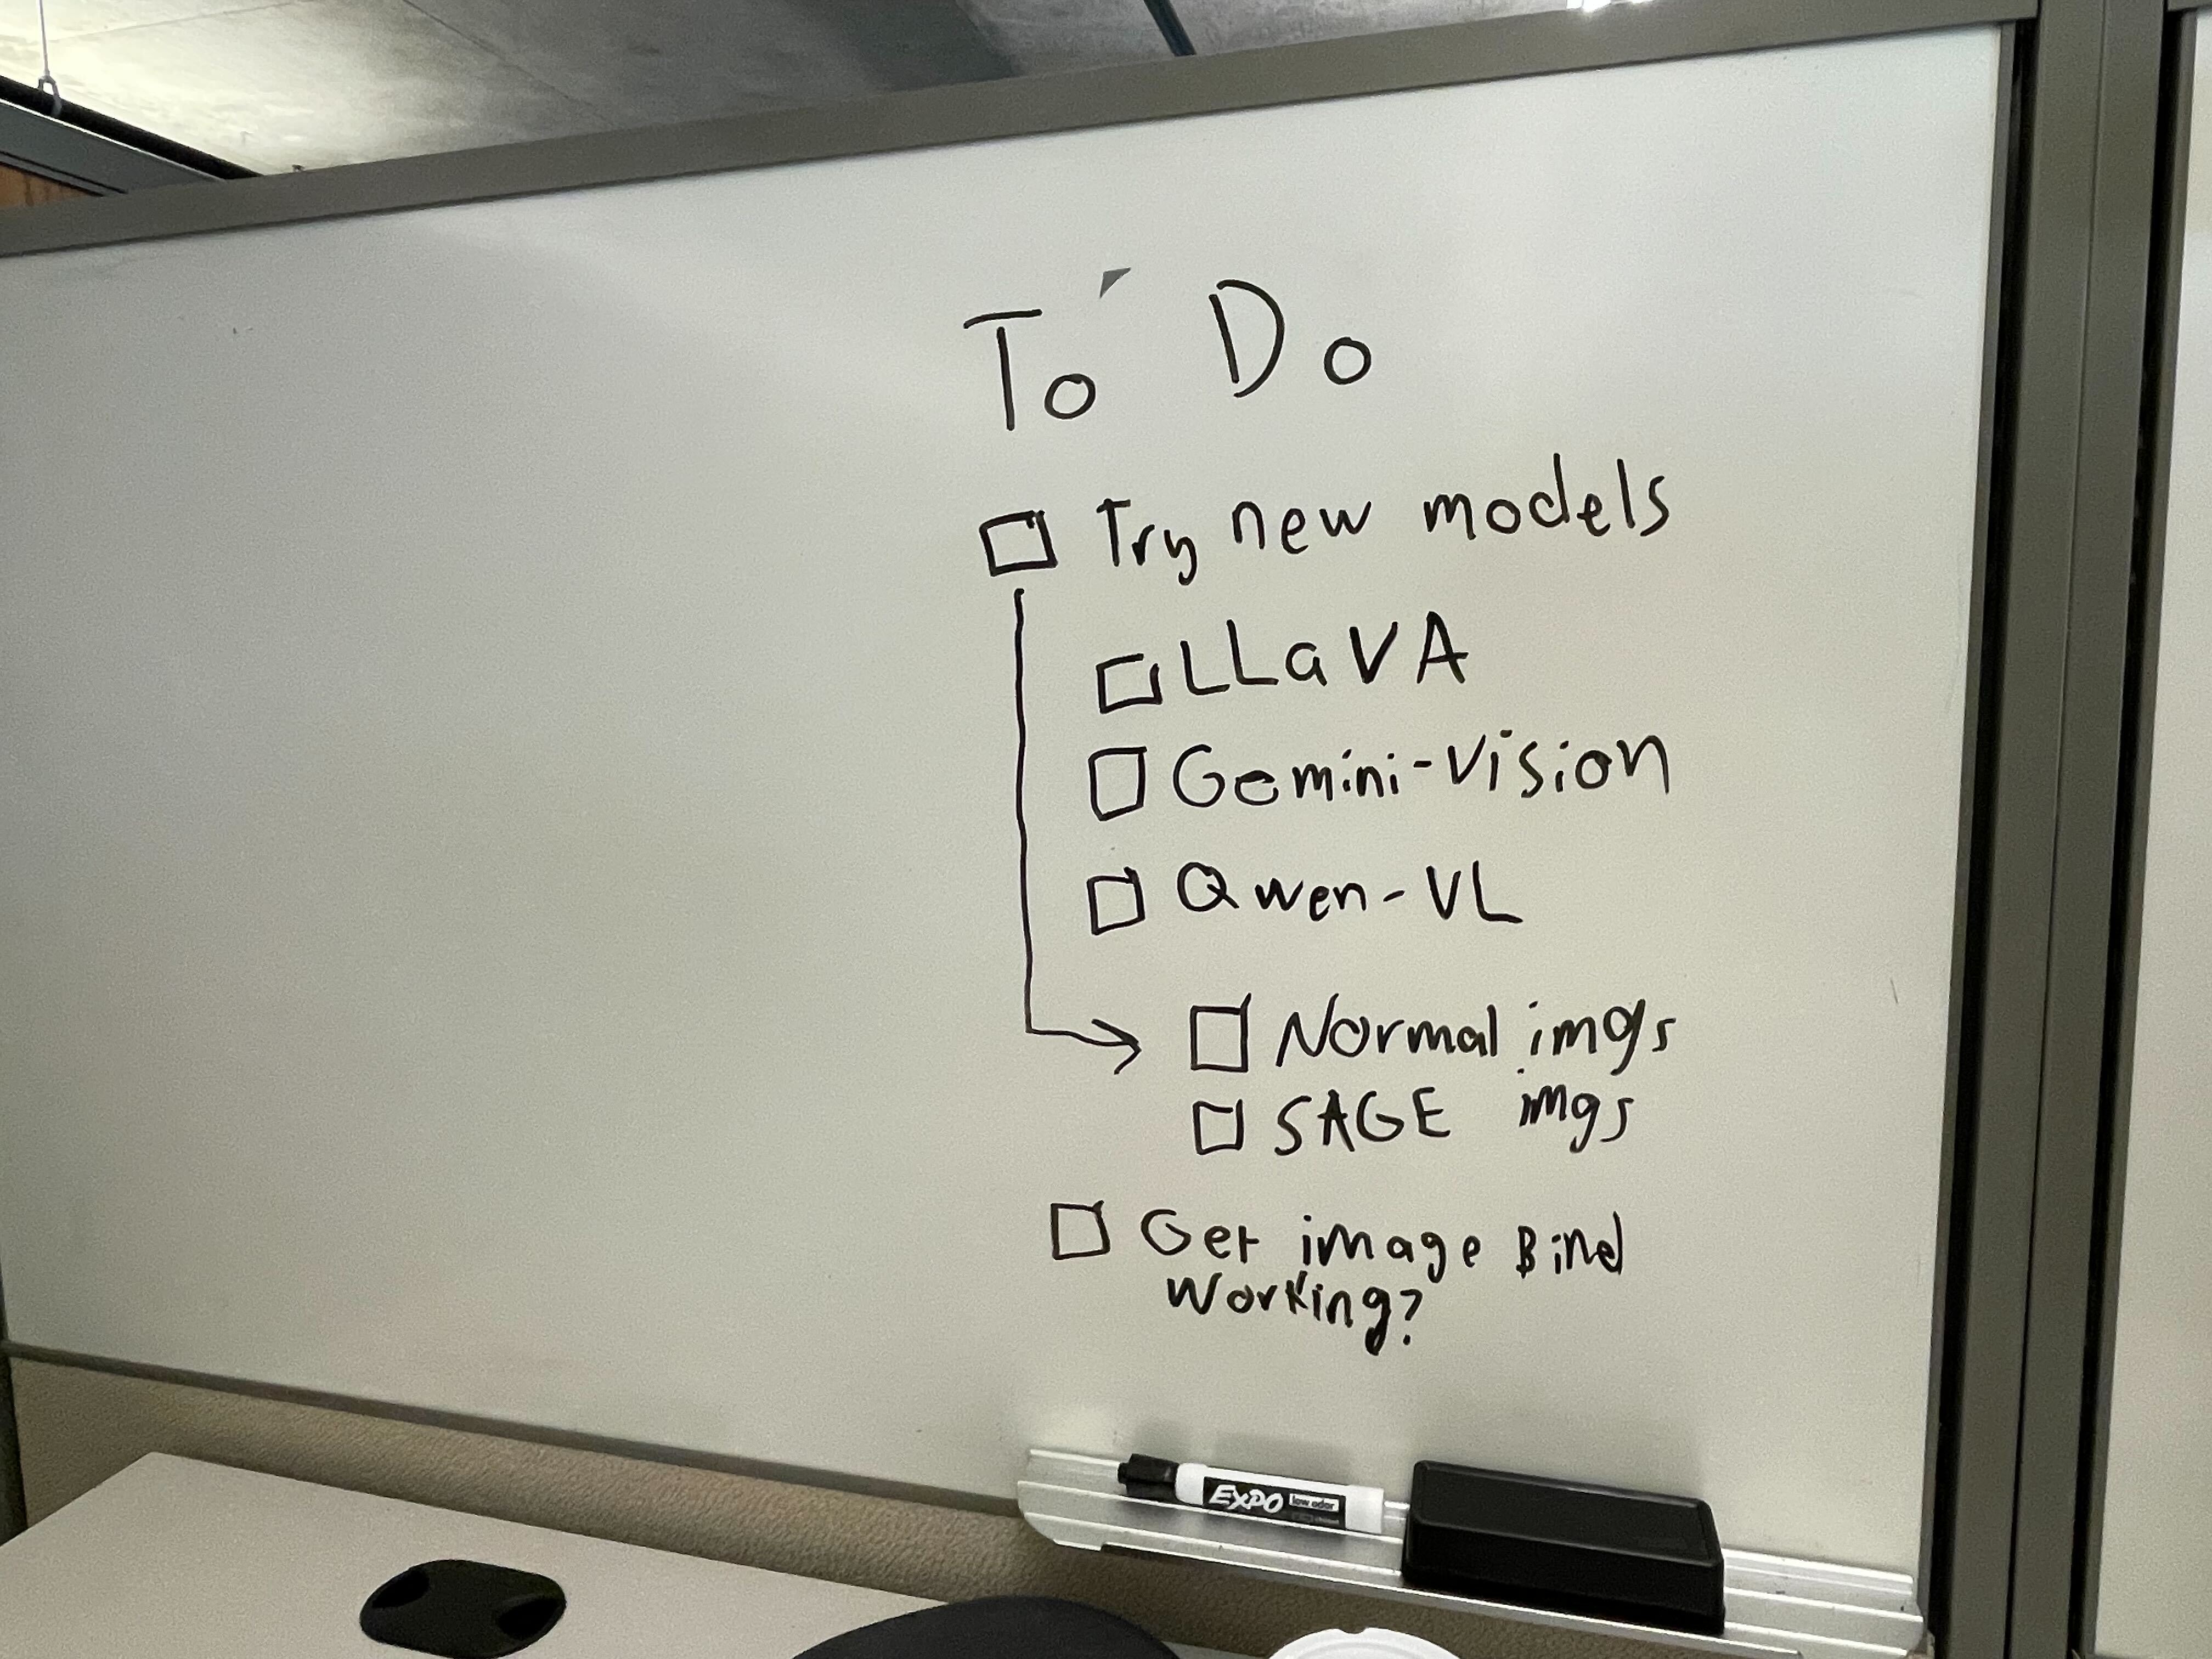 To Do
Try new models
LLaVA
Gemini-Vision
Qwen-VL
Normal imgs
SAGE imgs
Get image Bind
Working?
EXPO low odor